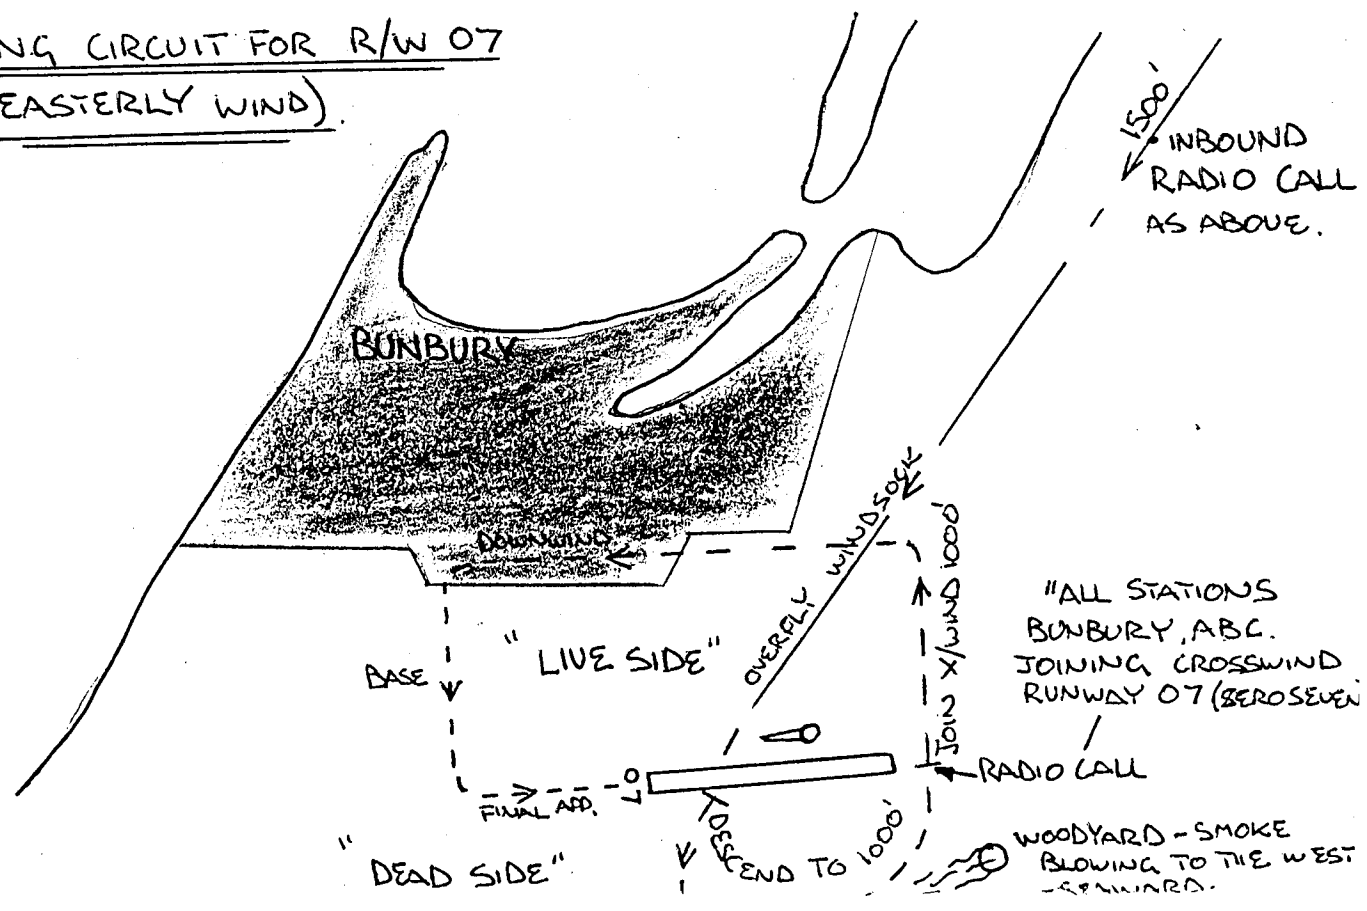 NG CIRCUIT FOR R/W 07
EASTERLY WIND).
1500'
INBOUND
RADIO CALL
AS ABOVE.
BUNBURY
OVERFLY WINDSOCK
DOWNWIND
JOIN X/WIND 1000'
"ALL STATIONS
BUNBURY, ABC.
JOINING CROSSWIND
RUNWAY 07 (ZEROSEVEN
"LIVE SIDE"
BASE
RADIO CALL
07
FINAL APP.
DESCEND TO 1000'
"DEAD SIDE"
WOODYARD - SMOKE
BLOWING TO THE WEST